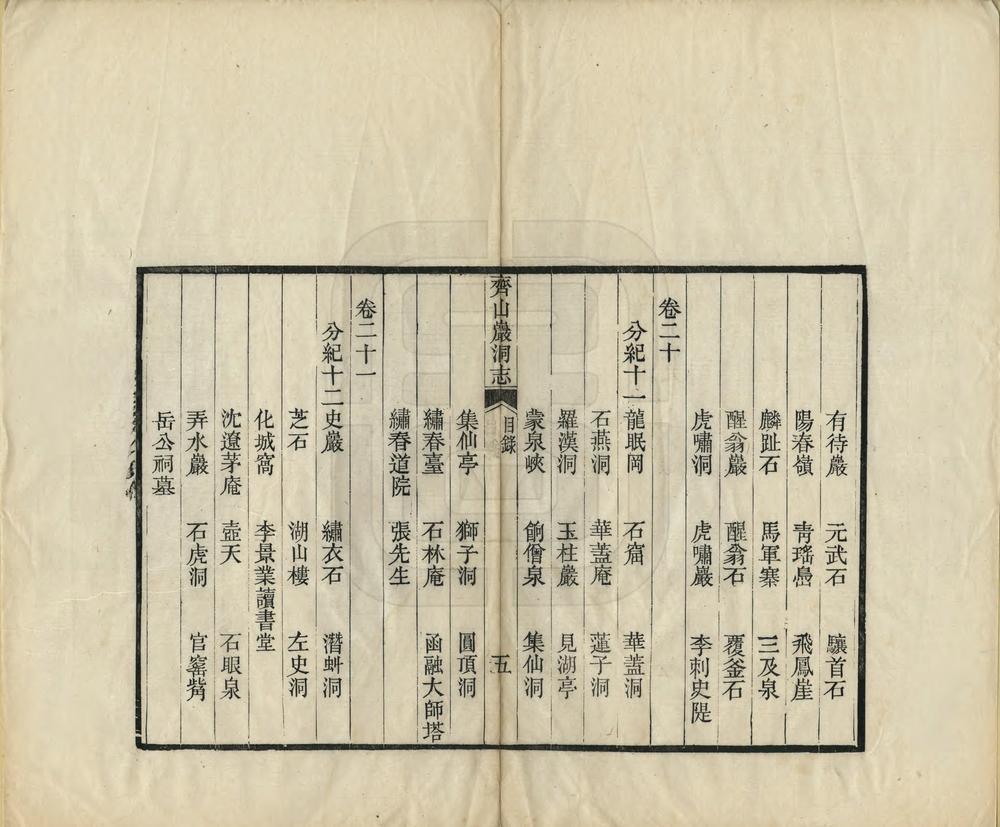 有待巖　元武石　驤首石
陽春嶺　靑瑤島　飛鳳崖
麟趾石　馬軍寨　三及泉
醒翁巖　醒翁石　覆釜石
虎嘯洞　虎嘯巖　李刺史隄
卷二十
分紀十一　龍眠岡　石窟　華蓋洞
石燕洞　華蓋庵　蓮子洞
羅漢洞　玉柱巖　見湖亭
蒙泉峽　餉僧泉　集仙洞
齊山巖洞志　目錄　五
集仙亭　獅子洞　圓頂洞
繡春臺　石林庵　函融大師塔
繡春道院　張先生
卷二十一
分紀十二　史巖　繡衣石　潛虯洞
芝石　湖山樓　左史洞
化城窩　李景業讀書堂
沈遼茅庵　壺天　石眼泉
弄水巖　石虎洞　官窰觜
岳公祠墓